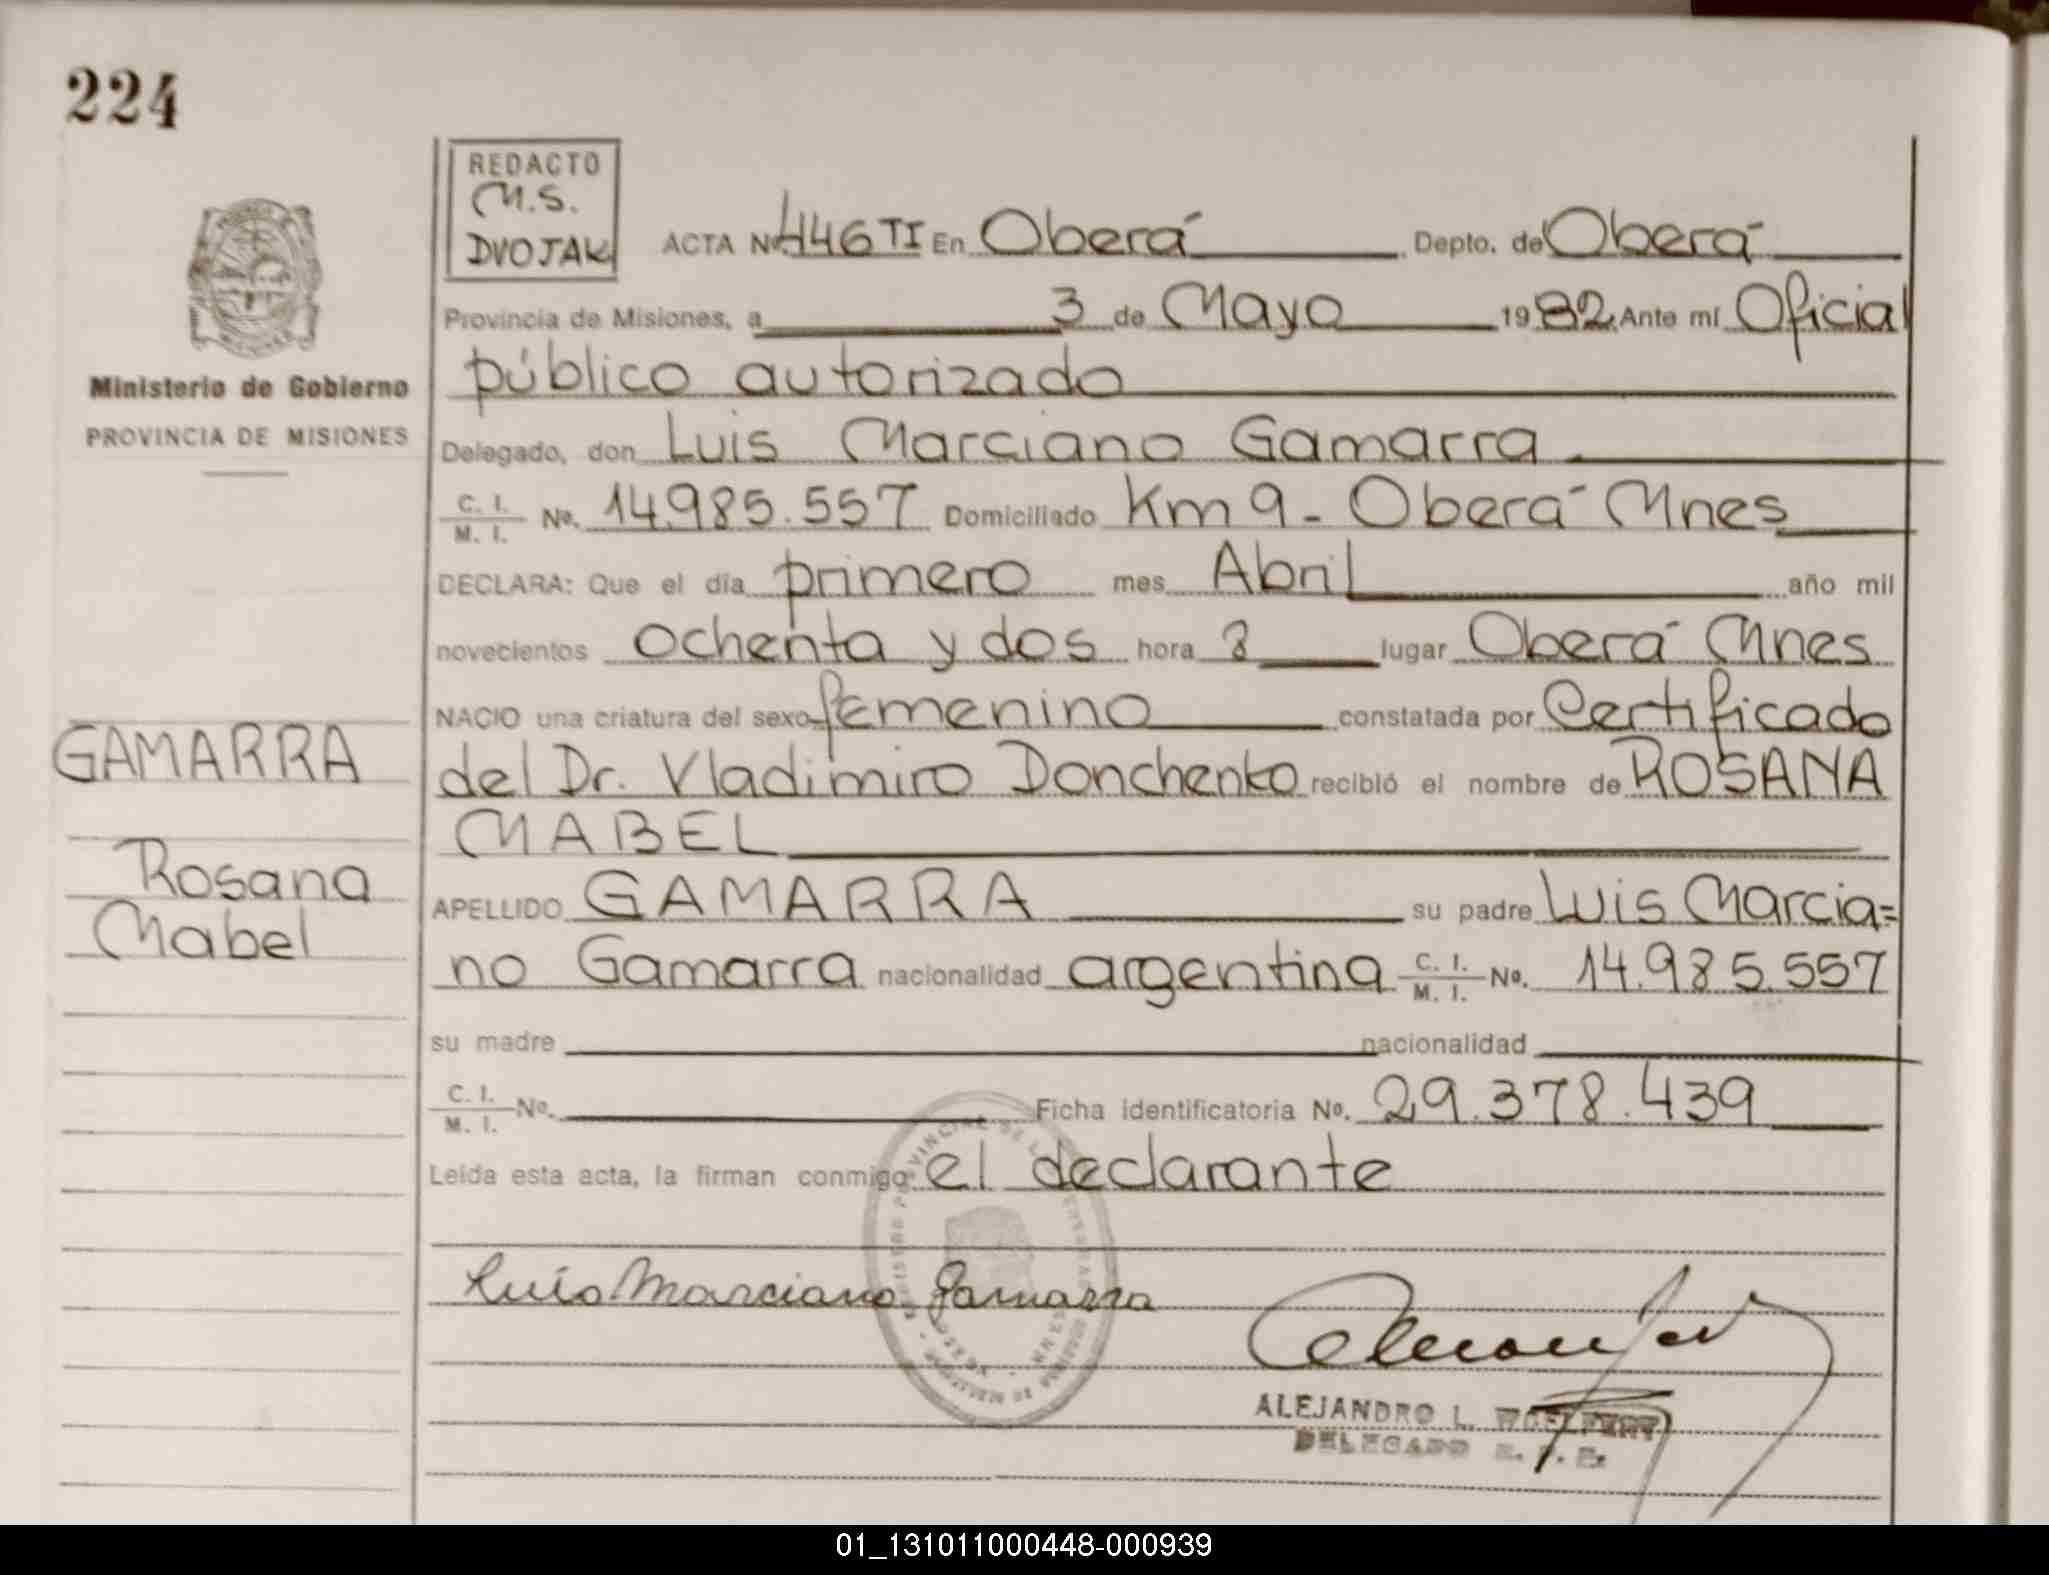 224
REDACTO
M.S.
DVOJAK
ACTA Nº 446 TI En Oberá Depto. de Oberá
Provincia de Misiones, a 3 de Mayo 1982 Ante mí Oficial
público autorizado
Ministerio de Gobierno
PROVINCIA DE MISIONES
Delegado, don Luis Marciano Gamarra
C. I.
M. I. Nº. 14.985.557 Domiciliado Km 9 - Oberá Mnes
DECLARA: Que el día primero mes Abril año mil
novecientos ochenta y dos hora 8 lugar Oberá Mnes
NACIO una criatura del sexo femenino constatada por Certificado
GAMARRA
del Dr. Vladimiro Donchenko recibió el nombre de ROSANA
MABEL
Rosana
Mabel
APELLIDO GAMARRA su padre Luis Marcia=
no Gamarra nacionalidad argentina C. I.
M. I. Nº. 14.985.557
su madre nacionalidad
C. I.
M. I. Nº. Ficha identificatoria Nº. 29.378.439
Leída esta acta, la firman conmigo: el declarante
Luis Marciano Gamarra
ALEJANDRO L.
DELEGADO R. P. P.
01_131011000448-000939